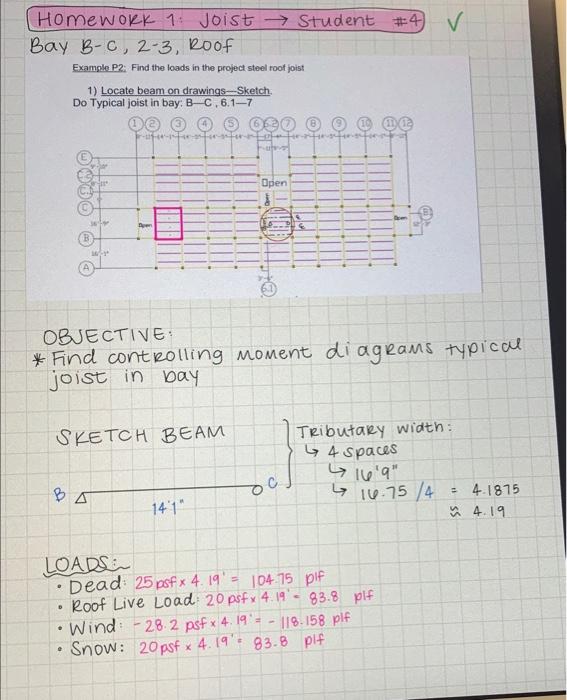 Homework 1: Joist → Student #4 ✓
Bay B-C, 2-3, Roof
Example P2: Find the loads in the project steel roof joist
1) Locate beam on drawings—Sketch.
Do Typical joist in bay: B—C , 6.1—7
1 2 3 4 5 6 6.2 7 8 9 10 11 12
E
Open
C
Open
B
16'-1"
A
6.1
OBJECTIVE:
* Find controlling moment diagrams typical
joist in bay
SKETCH BEAM
B
C
14'1"
Tributary width:
↳ 4 spaces
↳ 16'9"
↳ 16.75 /4 = 4.1875
≈ 4.19
LOADS:
• Dead: 25 psf x 4.19' = 104.75 plf
• Roof Live Load: 20 psf x 4.19' = 83.8 plf
• Wind: -28.2 psf x 4.19' = -118.158 plf
• Snow: 20 psf x 4.19' = 83.8 plf